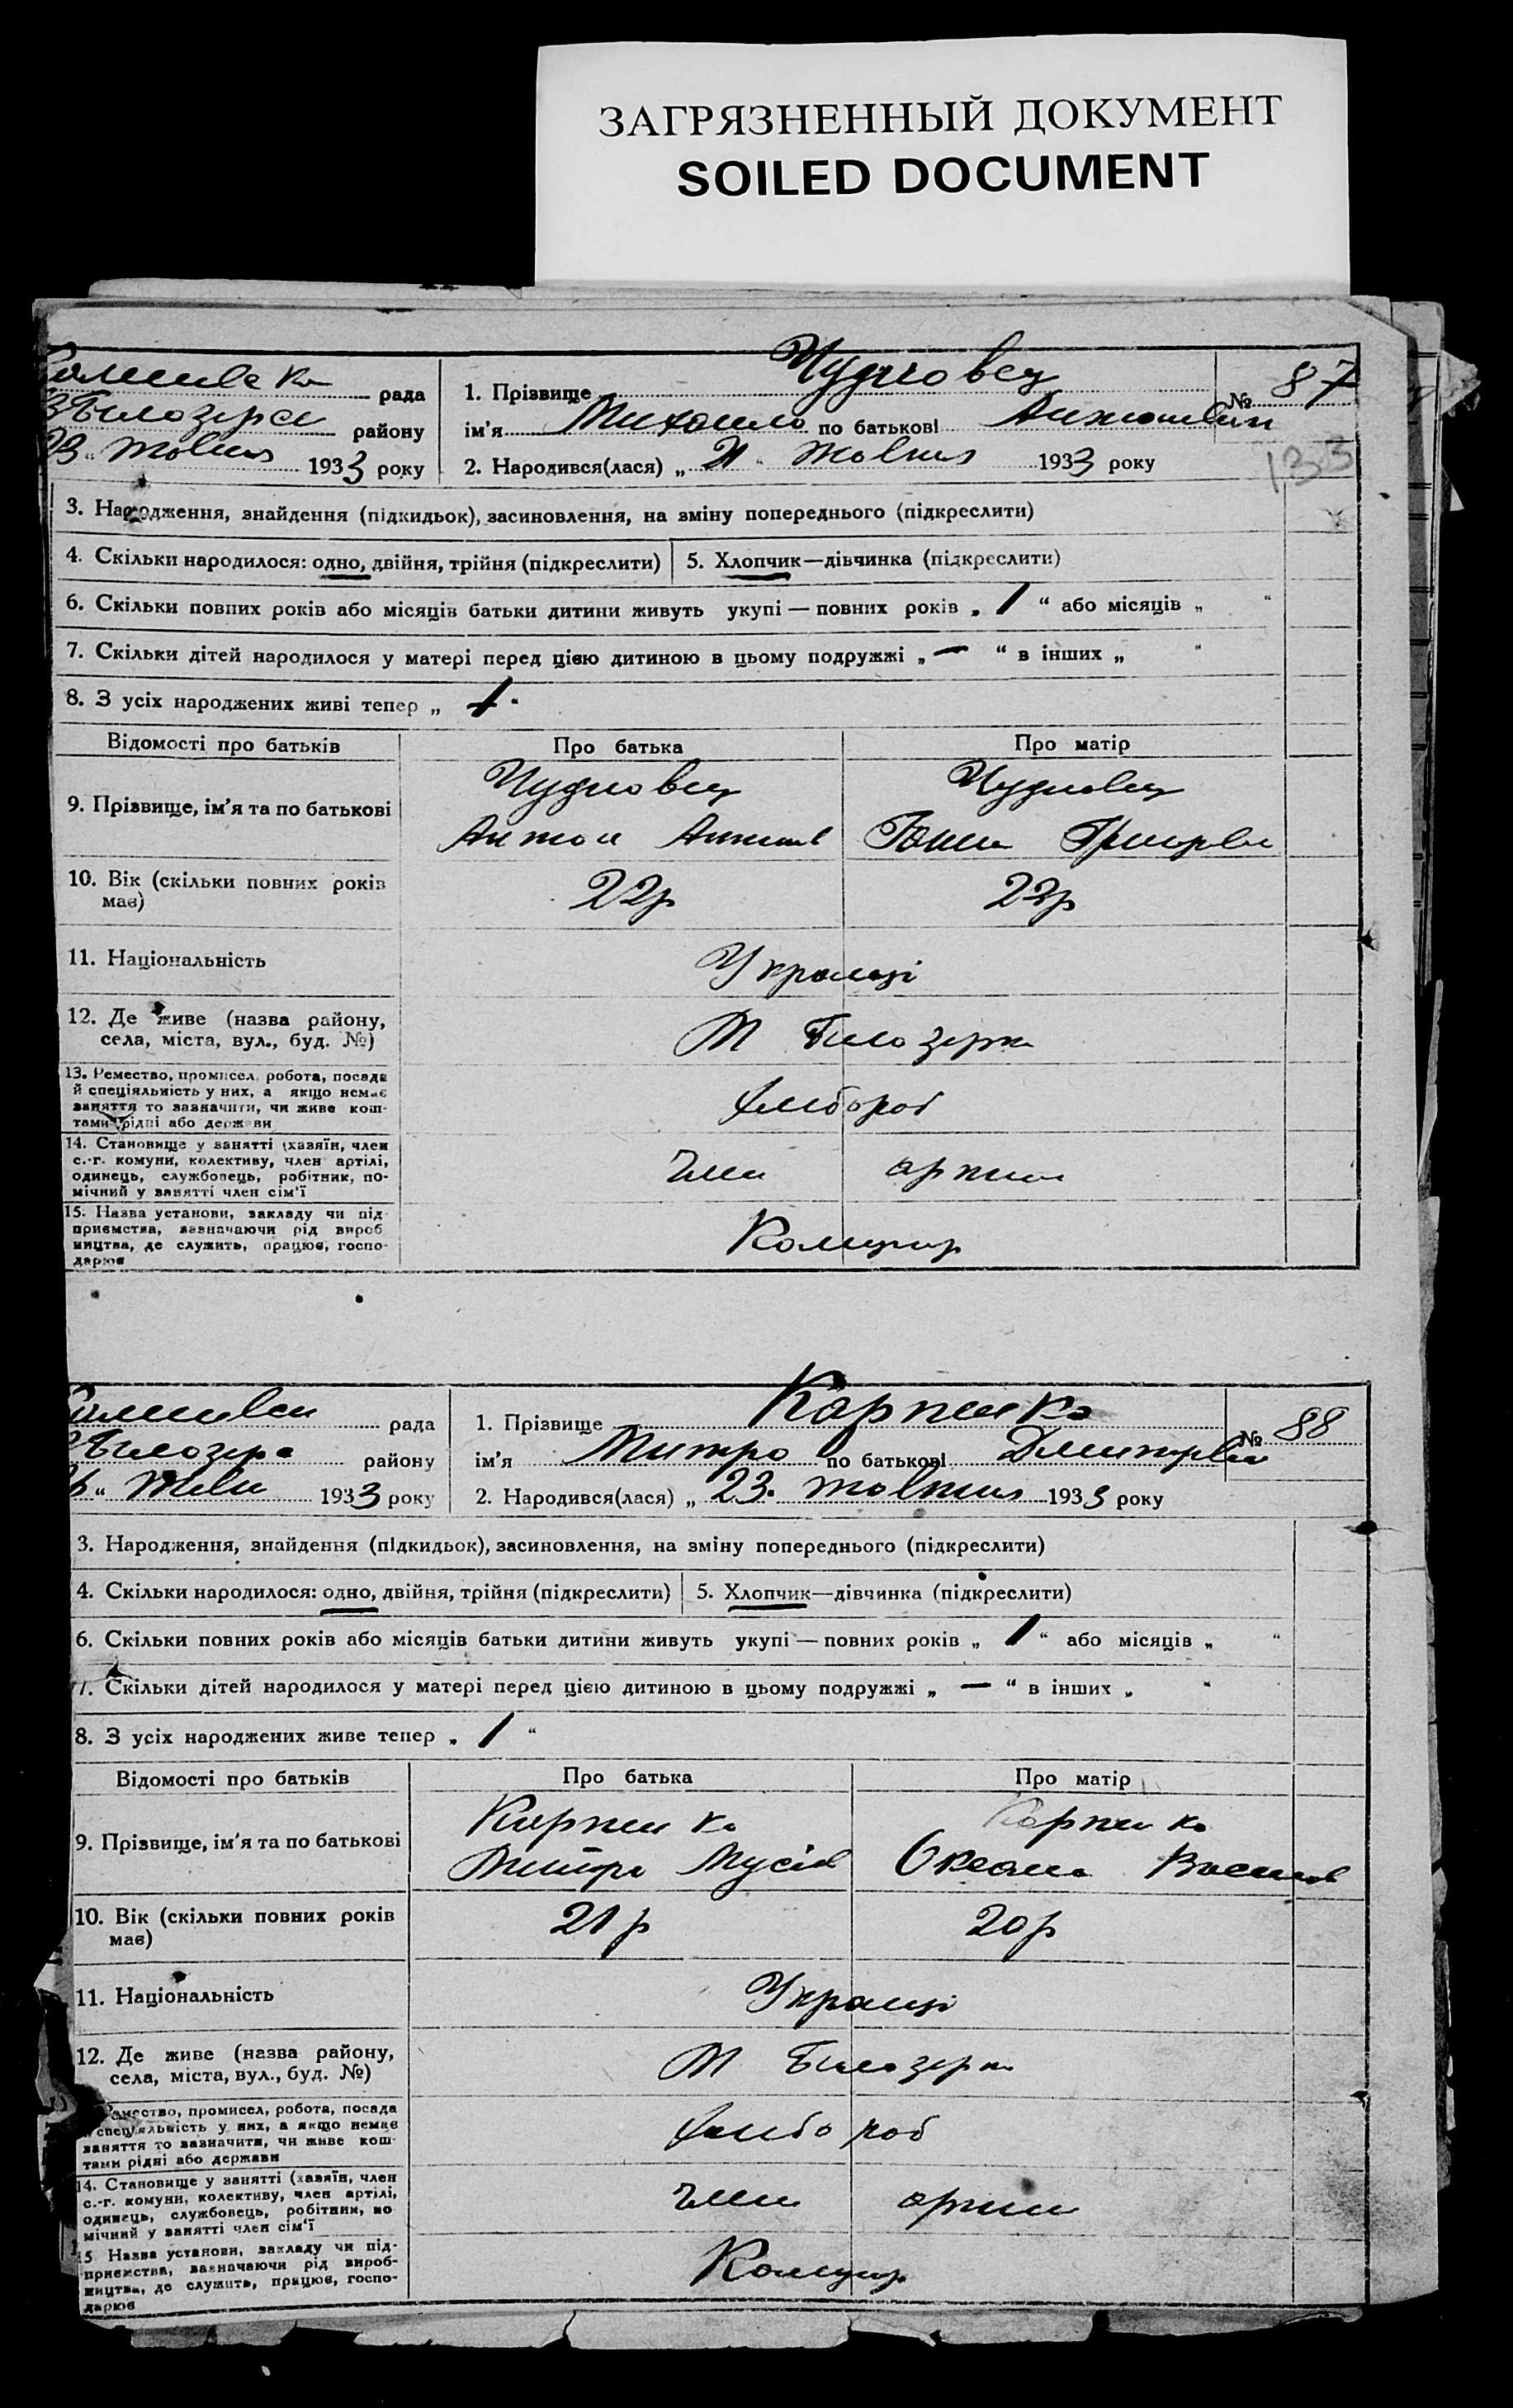 ЗАГРЯЗНЕННЫЙ ДОКУМЕНТ
SOILED DOCUMENT
рада
району
1933 року
1. Прізвище Чудновец
№ 87
ім’я Михаило по батькові
2. Народився(лася) „ жовтня 1933 року
133
3. Народження, знайдення (підкидьок), засиновлення, на зміну попереднього (підкреслити)
4. Скільки народилося: одно, двійня, трійня (підкреслити)
5. Хлопчик—дівчинка (підкреслити)
6. Скільки повних років або місяців батьки дитини живуть укупі — повних років „ 1 “ або місяців „ “
7. Скільки дітей народилося у матері перед цією дитиною в цьому подружжі „ — “ в інших „ “
8. З усіх народжених живі тепер „ 1 “
Відомості про батьків
Про батька
Про матір
9. Прізвище, ім’я та по батькові
Чудновец
Чудновец
Антон
10. Вік (скільки повних років
має)
22р
22р
11. Національність
Українці
12. Де живе (назва району,
села, міста, вул., буд. №)
М Білозерка
13. Ремество, промисел, робота, посада
й спеціяльність у них, а якщо немає
заняття то зазначити, чи живе кош-
тами рідні або держави
хлібороб
14. Становище у занятті (хазяїн, член
с.-г. комуни, колективу, член артілі,
одинець, службовець, робітник, по-
мічний у занятті член сім’ї
член артілі
15. Назва установи, закладу чи під-
приємства, зазначаючи рід вироб
ництва, де служить, працює, госпо-
дарює
рада
району
1933 року
1. Прізвище Карпенко
№ 88
ім’я Митро по батькові
2. Народився(лася) „ 23. жовтня 1933 року
3. Народження, знайдення (підкидьок), засиновлення, на зміну попереднього (підкреслити)
4. Скільки народилося: одно, двійня, трійня (підкреслити)
5. Хлопчик—дівчинка (підкреслити)
6. Скільки повних років або місяців батьки дитини живуть укупі — повних років „ 1 “ або місяців „ “
7. Скільки дітей народилося у матері перед цією дитиною в цьому подружжі „ — “ в інших „ “
8. З усіх народжених живе тепер „ 1 “
Відомості про батьків
Про батька
Про матір
9. Прізвище, ім’я та по батькові
Карпенко
Карпенко
Мусів
10. Вік (скільки повних років
має)
21р
20р
11. Національність
Українці
12. Де живе (назва району,
села, міста, вул., буд. №)
М Білозерка
Ремество, промисел, робота, посада
й спеціяльність у них, а якщо немає
заняття то зазначити, чи живе кош-
тами рідні або держави
хлібороб
14. Становище у занятті (хазяїн, член
с.-г. комуни, колективу, член артілі,
одинець, службовець, робітник, по
мічний у занятті член сім’ї
член артілі
15 Назва установи, закладу чи під-
приємства, зазначаючи рід вироб-
ництва, де служить, працює, госпо-
дарює